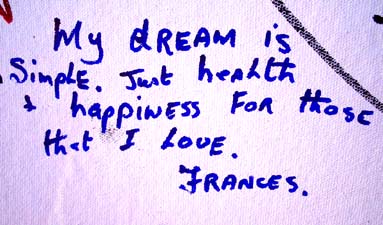 My dREAM is
Simple. Just health
& happiness for those
that I Love.
FRANCES.